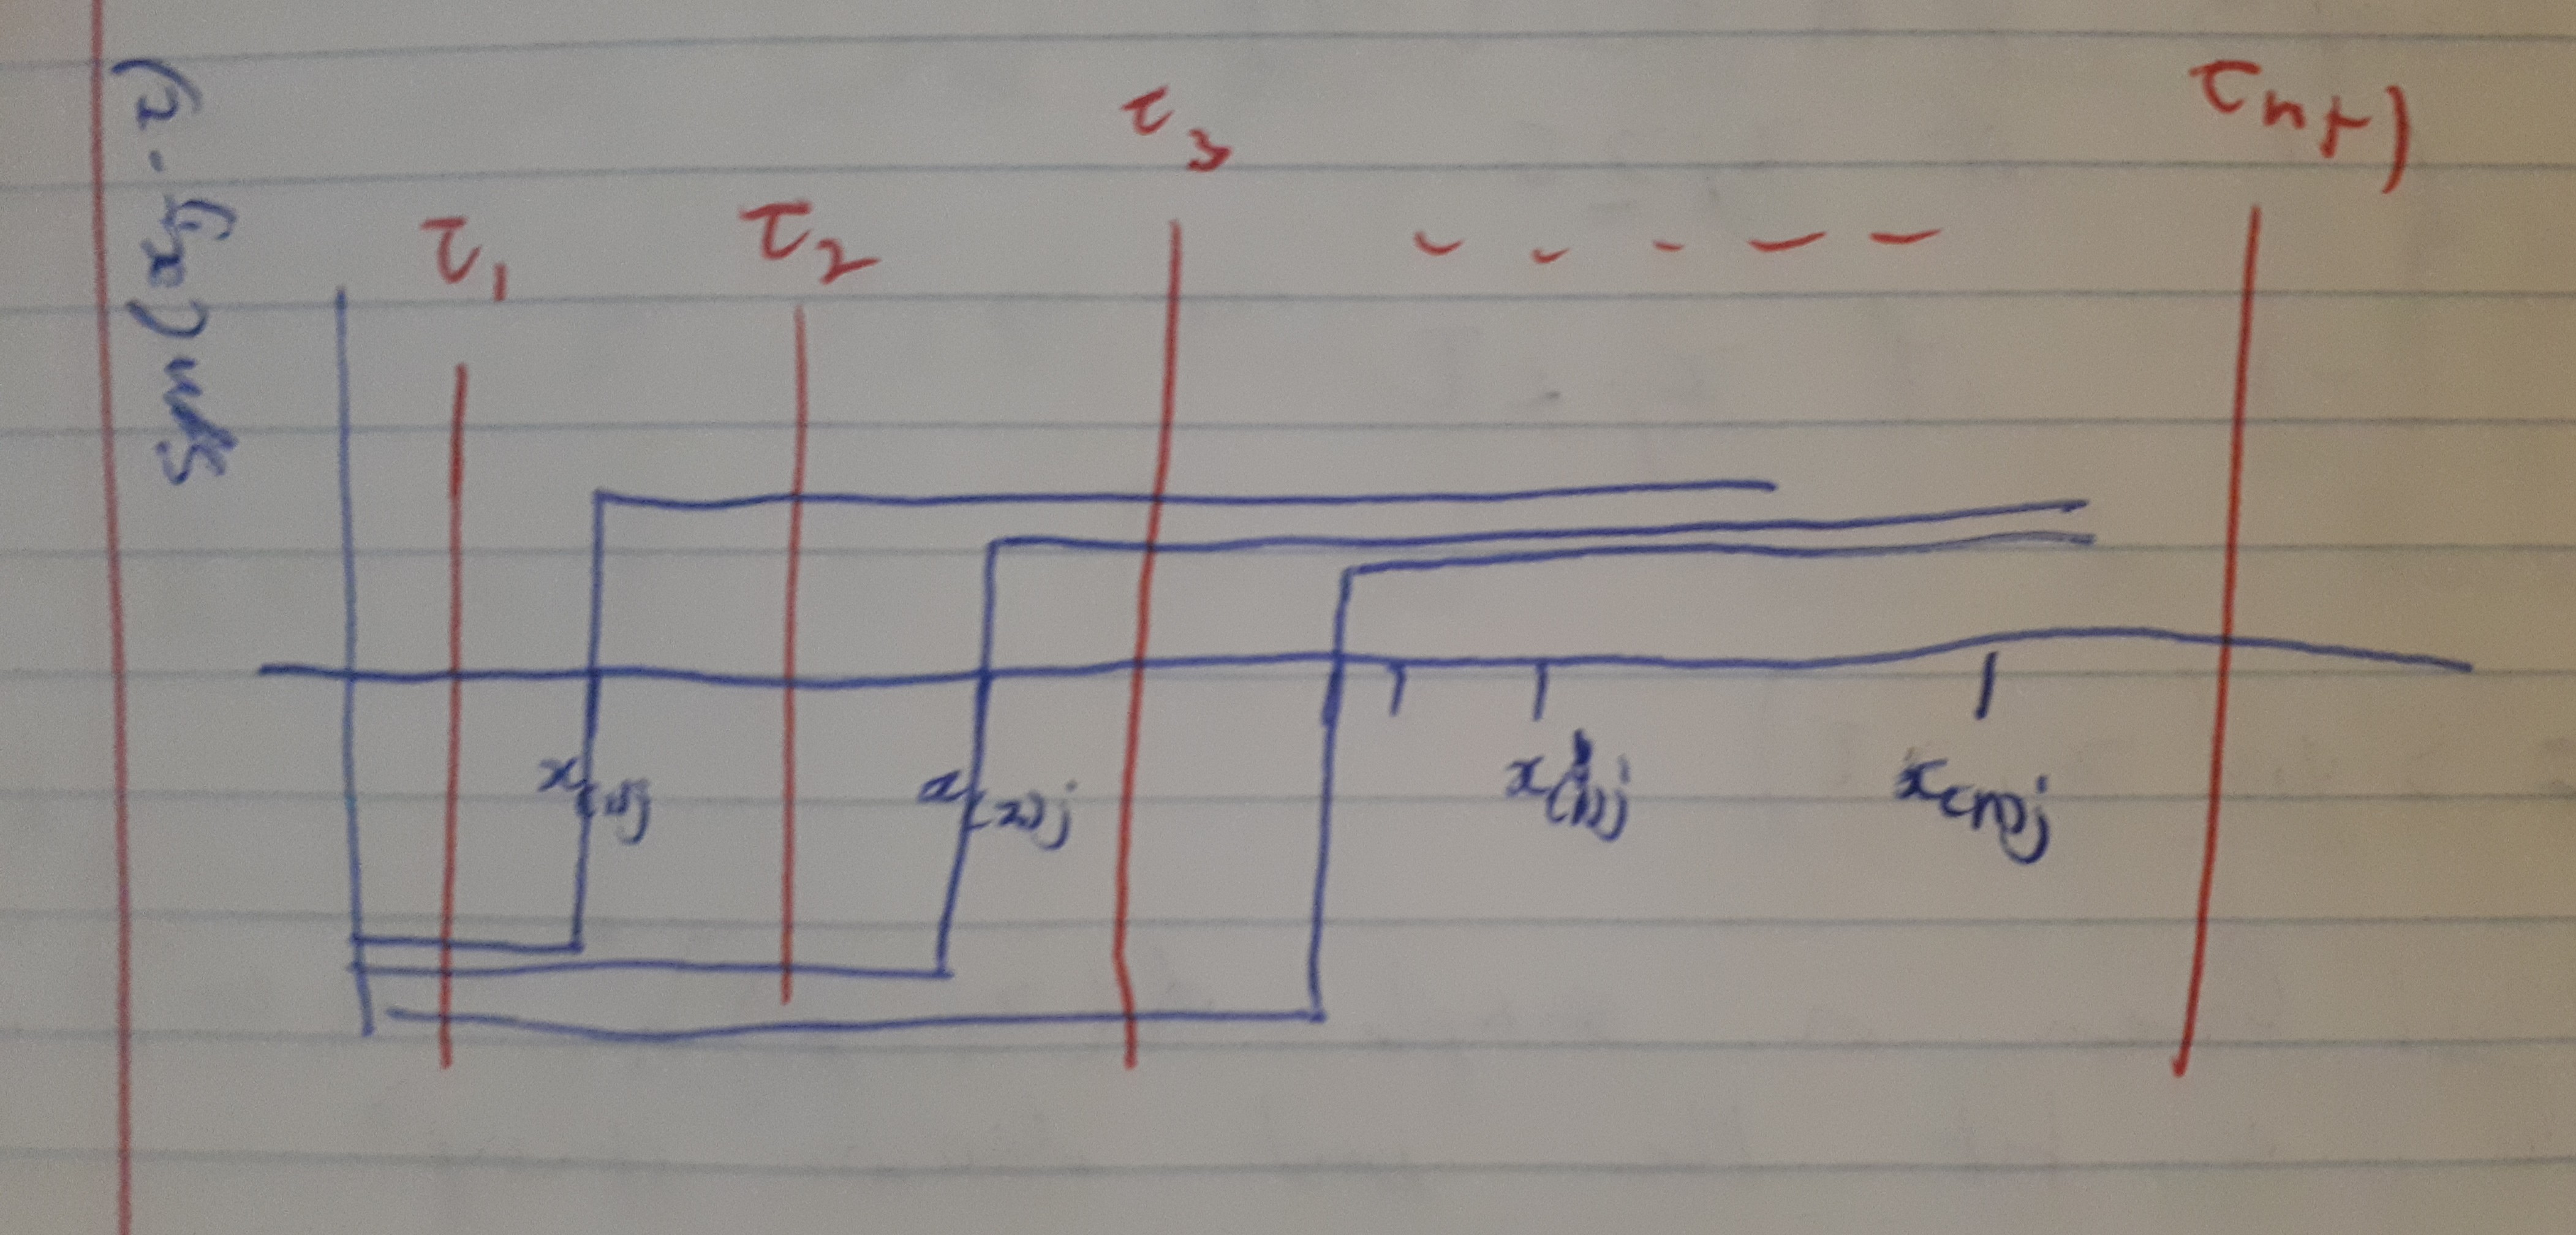 sgn(x_ij - τ)
τ_1 τ_2 τ_3 - - - - - τ_n+1
x_(1)j x_(2)j x_(n)j